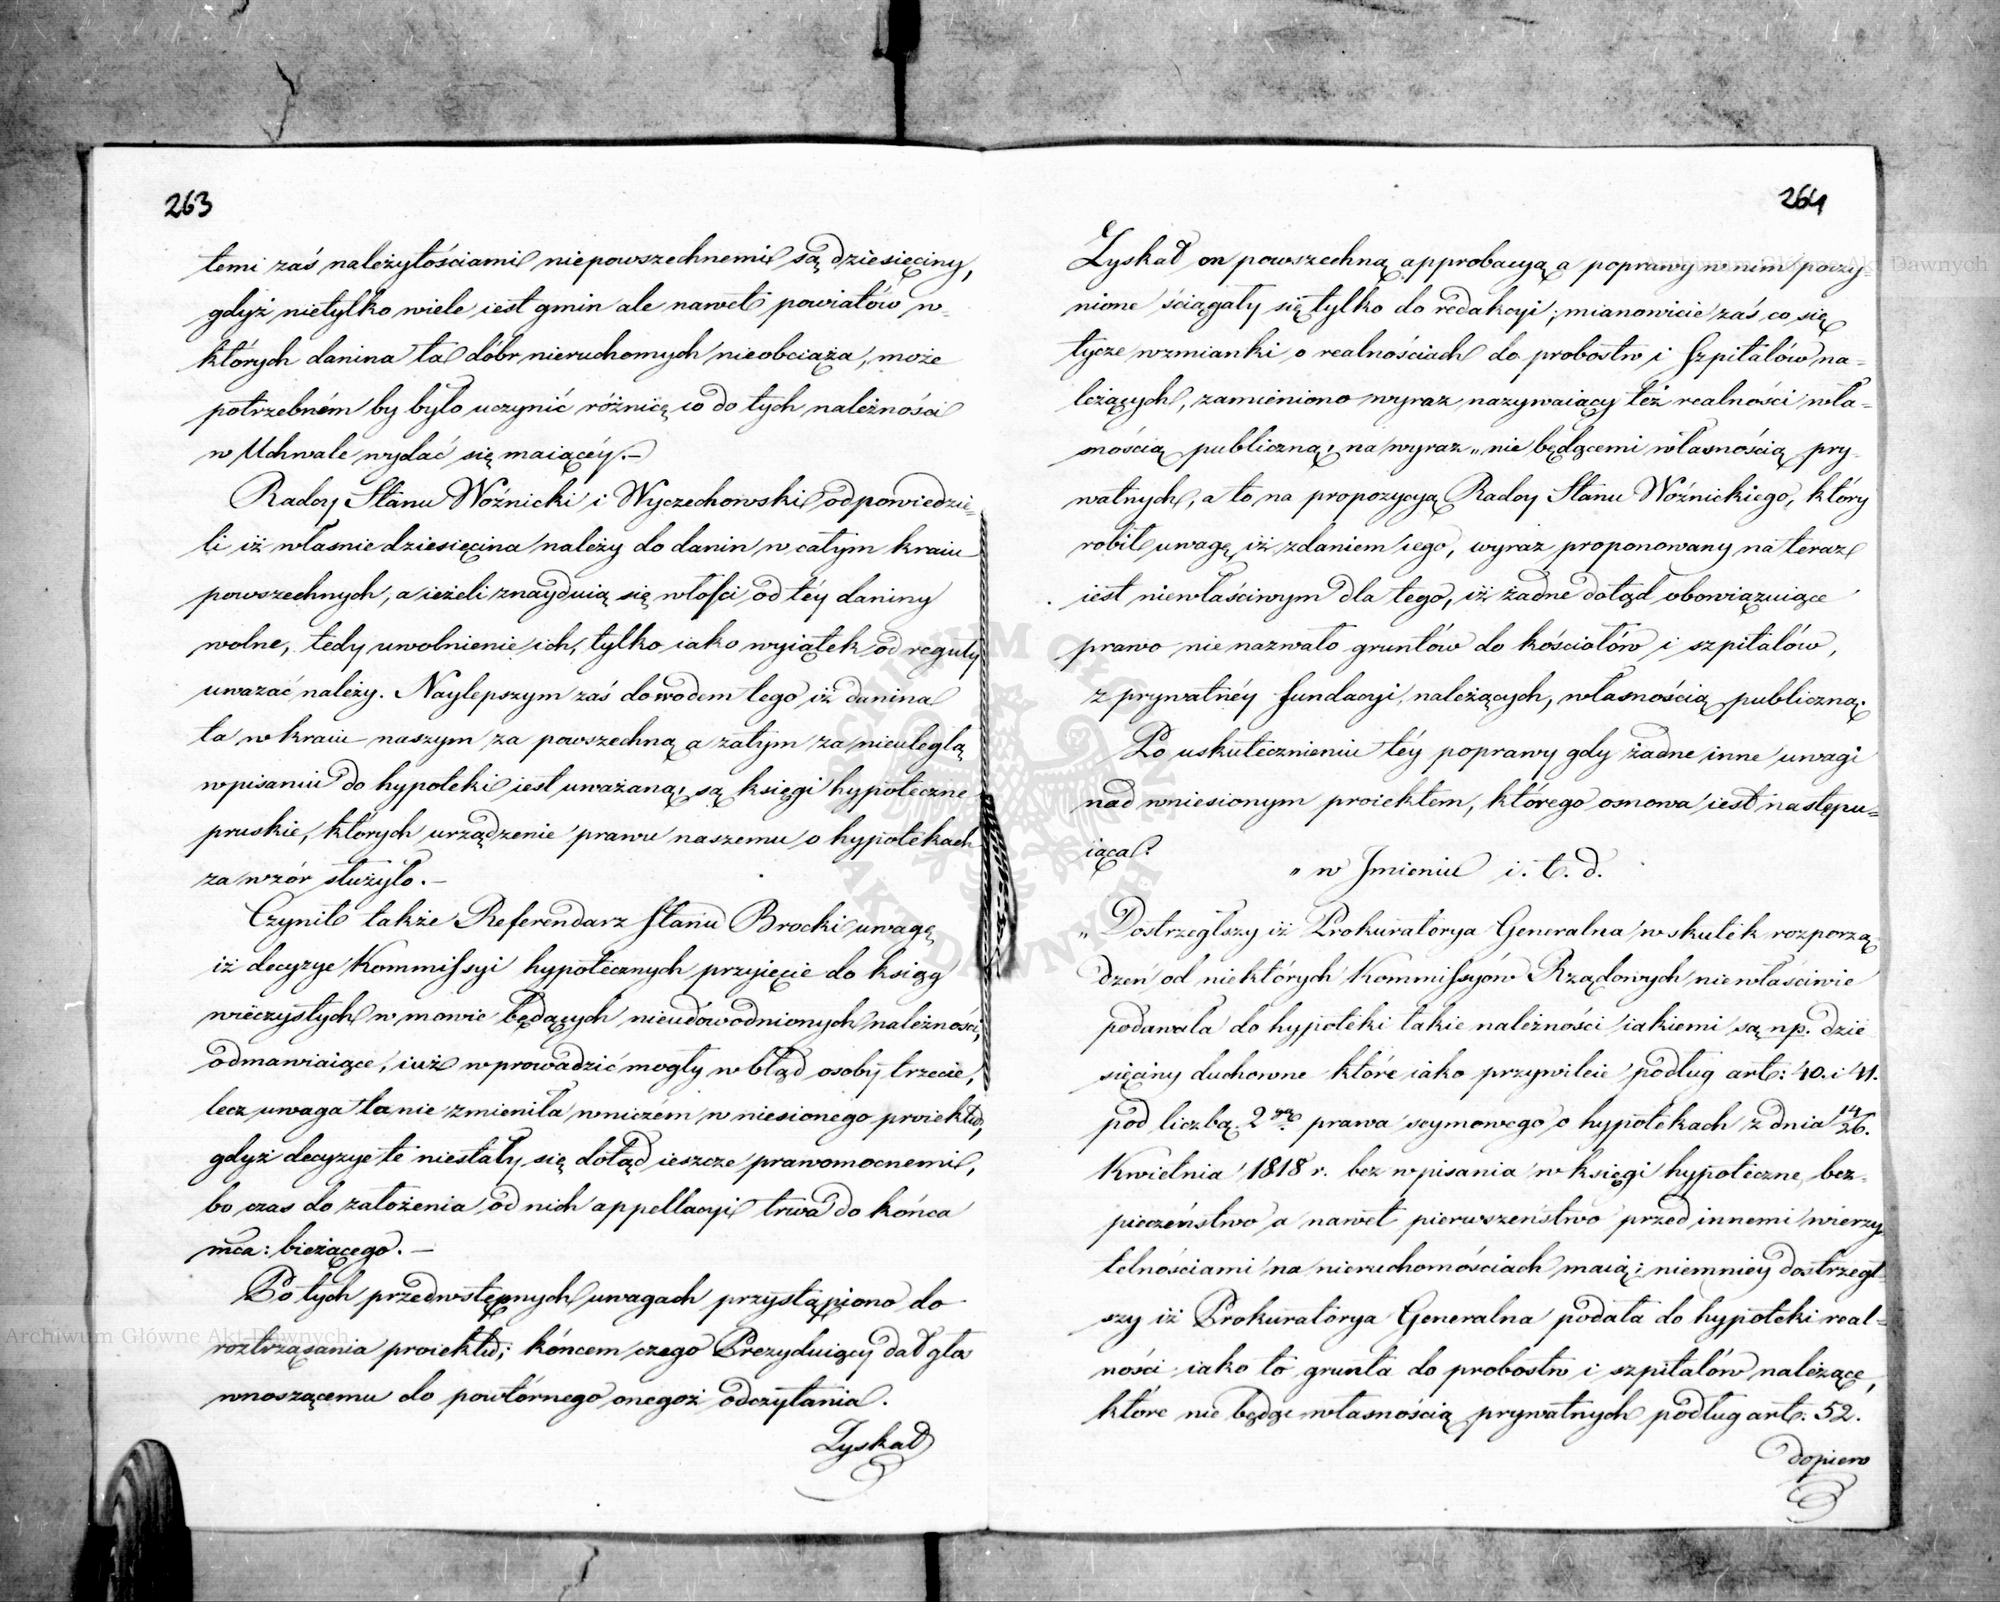 263
temi zaś należytościami niepowszechnemi są dziesięciny,
gdyż nietylko wiele iest gmin ale nawet powiatów w-
których danina ta dóbr nieruchomych nieobciąża, może
potrzebném by było uczynić różnicę co do tych należności
w Uchwale wydać się maiącéy.—
Radcy Stanu Woźnicki i Wyczechowski odpowiedzie-
li iż własnie dziesięcina należy do danin w całym kraiu
powszechnych, a ieżeli znayduią się włości od téy daniny
wolne, tedy uwolnienie ich, tylko iako wyiątek od reguły
uważać należy. Naylepszym zaś dowodem tego iż danina
ta w kraiu naszym za powszechną a zatym za nieuległą
wpisaniu do hypoteki iest uważaną, są księgi hypoteczne
pruskie, których urządzenie prawu naszemu o hypotekach
za wzór służyło.—
Czynił także Referendarz Stanu Brocki uwagę
iż decyzye Kommissyi hypotecznych przyięcie do ksiąg
wieczystych w mowie będących nieudowodnionych należności,
odmawiaiące, iuż wprowadzić mogły w błąd osoby trzecie,
lecz uwaga ta nie zmieniła wniczém wniesionego proiektu,
gdyż decyzye te niestały się dotąd ieszcze prawomocnemi,
bo czas do założenia od nich appellacyi trwa do końca
mca: bieżącego.—
Po tych przedwstępnych uwagach przystąpiono do
roztrząsania proiektu; końcem czego Prezyduiący dał głos
wnoszącemu do powtórnego onegoż odczytania.
Zyskał
264
Zyskał on powszechną approbacyą a poprawy w nim poczy-
nione ściągały się tylko do redakcyi; mianowicie zaś co się
tycze wzmianki o realnościach do probostw i Szpitalów na-
leżących, zamieniono wyraz nazywaiący też realności wła-
snością publiczną, na wyraz „nie będącemi własnością pry-
watnych, a to na propozycyą Radcy Stanu Woźnickiego, który
robił uwagę, iż zdaniem iego, wyraz proponowany na teraz
iest niewłaściwym dla tego, iż żadne dotąd obowiązuiące
prawo nie nazwało gruntów do kościołów i szpitalów,
z prywatnéy fundacyi należących, własnością publiczną.
Po uskutecznieniu téy poprawy gdy żadne inne uwagi
nad wniesionym proiektem, którego osnowa iest następu-
iąca:
„w Jmieniu i. t. d.
„Dostrzegłszy iż Prokuratorya Generalna wskutek rozporzą-
dzeń od niektórych Kommissyów Rządowych niewłaściwie
podawała do hypoteki takie należności iakiemi są np. dzie-
sięciny duchowne które iako przywileie podług art: 40. i 41.
pod liczbą 2gą prawa seymowego o hypotekach z dnia 14/26.
Kwietnia 1818 r. bez wpisania w księgi hypoteczne, bez-
pieczeństwo a nawet pierwszeństwo przed innemi wierzy-
telnościami na nieruchomościach maią; niemniéy dostrzegł-
szy iż Prokuratorya Generalna podała do hypoteki real-
ności iako to grunta do probostw i szpitalów należące,
które nie będąc własnością prywatnych podług art: 52.
dopiero
Archiwum Główne Akt Dawnych
Archiwum Główne Akt Dawnych
ARCHIWUM GŁÓWNE AKT DAWNYCH